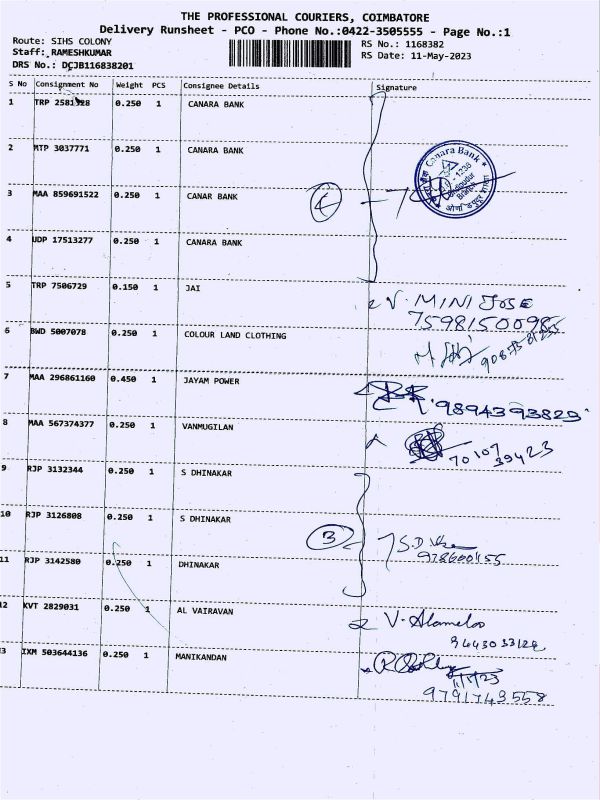 THE PROFESSIONAL COURIERS, COIMBATORE
Delivery Runsheet - PCO - Phone No.:0422-3505555 - Page No.:1
Route: SIHS COLONY
Staff: RAMESHKUMAR
DRS No.: DCJB116838201
RS No.: 1168382
RS Date: 11-May-2023
S No Consignment No Weight PCS Consignee Details Signature
1 TRP 0.250 1 CANARA BANK
2 MTP 3037771 0.250 1 CANARA BANK
Canara Bank
3 MAA 859691522 0.250 1 CANAR BANK
4 UDP 17513277 0.250 1 CANARA BANK
5 TRP 7506729 0.150 1 JAI V. MINI JOSE
6 BWD 5007078 0.250 1 COLOUR LAND CLOTHING
7 MAA 296861160 0.450 1 JAYAM POWER
9894393829
8 MAA 567374377 0.250 1 VANMUGILAN
70107
39423
9 RJP 3132344 0.250 1 S DHINAKAR
10 RJP 3126808 0.250 1 S DHINAKAR
3
11 RJP 3142580 0.250 1 DHINAKAR
12 KVT 2829031 0.250 1 AL VAIRAVAN V. Alamelu
13 IXM 503644136 0.250 1 MANIKANDAN
9791743558